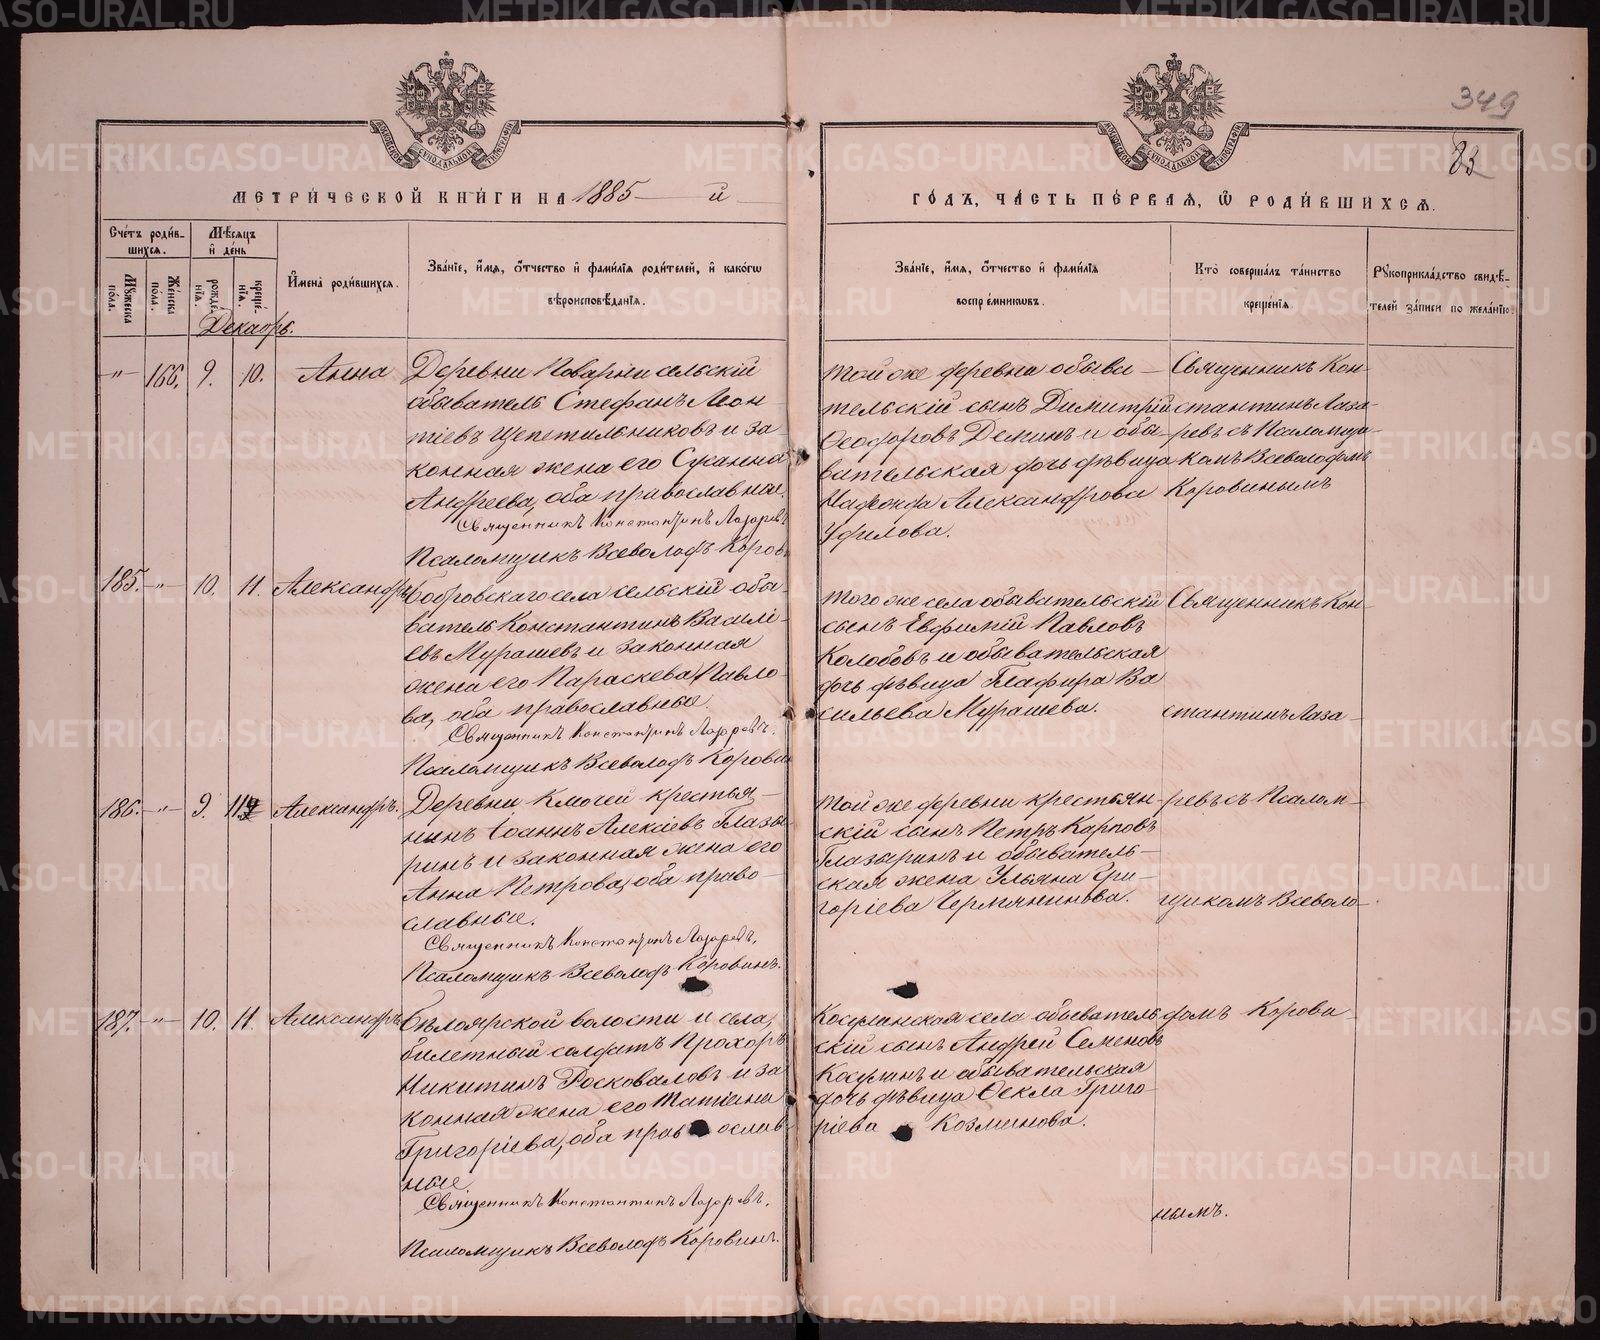 349
83
МЕТРИЧЕСКОЙ КНИГИ НА 1885 й
ГОДЪ, ЧАСТЬ ПЕРВАЯ, Ѡ РОДИВШИХСЯ.
Счетъ родившихся.
Мужеска пола.
Женска пола.
Мѣсяцъ и день
рожденія.
крещенія.
Имена родившихся.
Званіе, имя, отчество и фамилія родителей, и какогѡ
вѣроисповѣданія.
Званіе, имя, отчество и фамилія
воспріемниковъ.
Кто совершалъ таинство
крещенія
Рукоприкладство свидѣ-
телей записи по желанію.
Декабрь.
-"- 166. 9. 10. Анна
Деревни Поварни сельскій
обыватель Стефанъ Леон-
тіевъ Щепетильниковъ и за
конная жена его Сусанна
Андреева, оба православные.
Священникъ Константинъ Лазаревъ
Псаломщикъ Всеволодъ Корови
той же деревни обыви-
тельскій сынъ Димитрій
Ѳеодоровъ Деминъ и обы-
вательская дочь дѣвица
Александрова
Уфимова.
Священникъ Кон-
стантинъ Лаза-
ревъ съ Псаломщи-
комъ Всеволодомъ
Коровинымъ
185. -"- 10. 11. Александръ
Бобровскаго села сельскій обы-
ватель Константинъ Василі-
евъ Мурашевъ и законная
жена его Параскева Павло-
ва, оба православные.
Священникъ Константинъ Лазаревъ.
Псаломщикъ Всеволодъ Корови
того же села обывательскій
сынъ Евфимій Павловъ
Колобовъ и обывательская
дочь дѣвица Глафира Ва
сильева Мурашева.
Священникъ Кон-
стантинъ Лаза-
186. -"- 9. 11 Александръ.
Деревни Ключей крестья-
нинъ Іоаннъ Алексіевъ Глазы
ринъ и законная жена его
Анна Петрова, оба право-
славные.
Священникъ Константинъ Лазаревъ.
Псаломщикъ Всеволодъ Коровинъ.
той же деревни крестьян-
скій сынъ Петръ Карповъ
Глазыринъ и обыватель-
ская жена Ульяна Гри-
горіева Чермянинова.
ревъ съ Псалом-
щикомъ Всеволо-
187. -"- 10. 11. Александръ
Бѣлоярской волости и села,
билетный солдатъ Прохоръ
Никитинъ Росковаловъ и за
конная жена его Татіана
Григоріева, оба православ-
ные.
Священникъ Константинъ Лазаревъ.
Псаломщикъ Всеволодъ Коровинъ.
села обыватель
скій сынъ Андрей Семеновъ
и обывательская
дочь дѣвица Ѳекла Григо-
ріева Козминова.
домъ Корови
нымъ.
METRIKI.GASO-URAL.RU